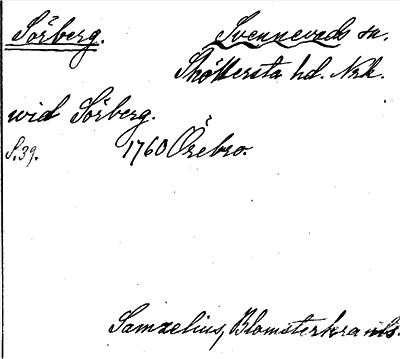 Sörberg.
Svennevads sn.
Sköllersta hd. Nrk.
wid Sörberg.
S.39. 1760 Örebro.
Samzelius, Blomsterkrants.